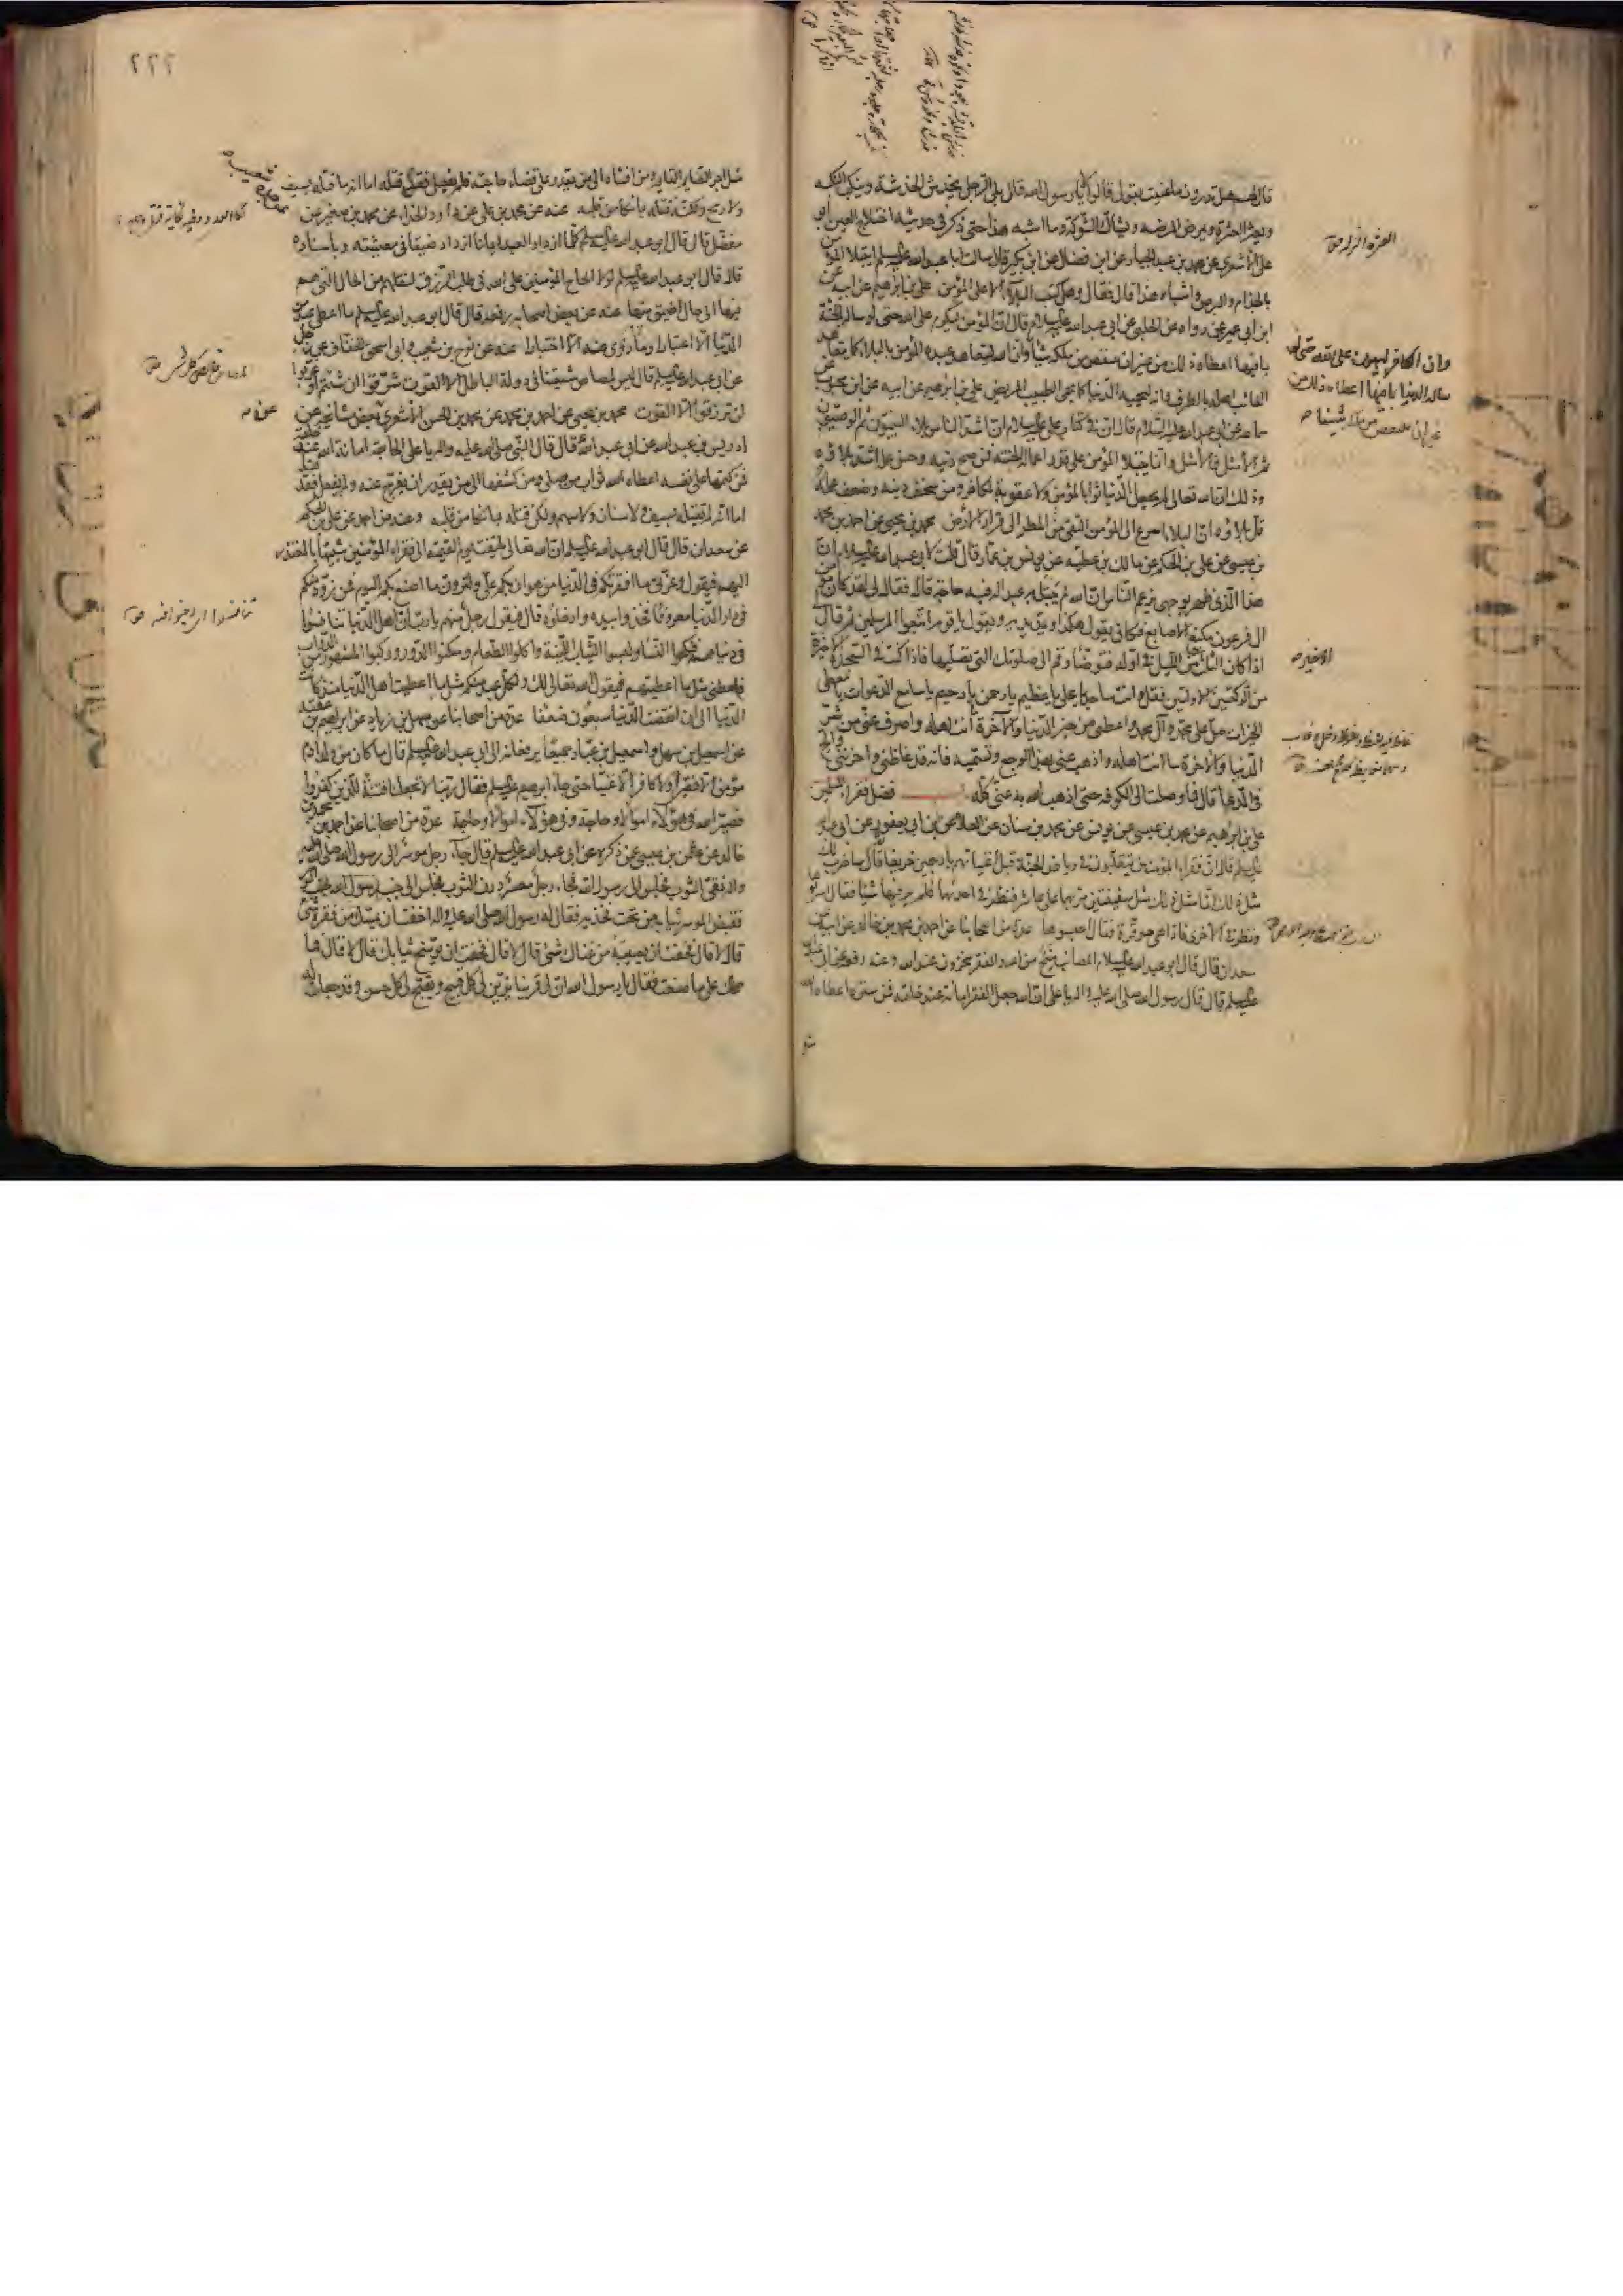 قال لهم هل تدرون ما عنيت بقولي قالوا لا يا رسول الله قال بلى الرجل يخدش الخدشة وينكب النكبة
ويعثر العثرة ويمرض المرضة ويشاك الشوكة وما اشبه هذا حتى ذكر في حديثه اختلاج العين ابو
على الاشعري عن محمد بن عبد الجبار عن ابن فضال عن ابن بكير قال سالت ابا عبد الله عليه السلم ايبتلى المؤمن
بالجذام والبرص واشباه هذا قال فقال وهل كتب البلاء الا على المؤمن على بن ابرهيم عن ابيه عن
ابن ابي عمير عمن رواه عن الحلبي عن ابي عبد الله عليه السلام قال ان المؤمن ليكرم على الله حتى لو ساله الجنة
بما فيها اعطاه ذلك من غير ان ينقص من ملكه شيئا وان الله ليتعاهد عبده المؤمن بالبلاء كما يتعاهد
الغائب اهله بالطرف وانه ليحميه الدنيا كما يحمى الطبيب المريض على بن ابرهيم عن ابيه عن ابن محبوب عن
سماعه عن ابي عبد الله عليه السلام قال ان في كتاب على عليه السلام ان اشد الناس بلاء النبيون ثم الوصيون
ثم الامثل فالامثل وانما يبتلى المؤمن على قدر اعماله الحسنة فمن صح دينه وحسن عمله اشتد بلاؤه
وذلك ان الله تعالى لم يجعل الدنيا ثوابا لمؤمن ولا عقوبة لكافر ومن سخف دينه وضعف عمله
قل بلاؤه ان البلاء اسرع الى المؤمن التقى من المطر الى قرار الارض محمد بن يحيى عن احمد بن محمد
بن عيسى عن على بن الحكم عن مالك بن عطيه عن يونس بن عمار قال قلت لابي عبد الله عليه السلام ان
هذا الذي ظهر بوجهي يزعم الناس ان الله لم يبتل به عبدا له فيه حاجة قال فقال لي لقد كان مؤمن
ال فرعون مكنع الاصابع فكان يقول هكذا ويمد يديه ويقول يا قوم اتبعوا المرسلين ثم قال
اذا كان الثلث من الليل في اوله فتوضأ وقم الى صلوتك التي تصليها فاذا كنت في السجدة الاخيرة
من الركعتين الاوليين فقل وانت ساجد يا على يا عظيم يا رحمن يا رحيم يا سامع الدعوات يا معطى
الخيرات صل على محمد وآل محمد واعطني من خير الدنيا والآخرة ما انت اهله واصرف عنى من شر
الدنيا والآخرة ما انت اهله واذهب عنى بهذا الوجع وتسميه فانه قد غاظنى واحزننى والح
في الدعاء قال فما وصلت الى الكوفه حتى اذهب الله به عنى كله فضل فقراء المسلمين
على بن ابراهيم عن محمد بن عيسى عن يونس عن محمد بن سنان عن العلاء عن ابن ابي يعفور عن ابي عبد الله
عليه السلم قال ان فقراء المؤمنين يتقلبون في رياض الجنة قبل اغنيائهم باربعين خريفا ثم قال ساضرب لك
مثل ذلك انما مثل ذلك مثل سفينتين مر بهما على عاشر فنظر في احديهما فلم ير فيها شيئا فقال اسربوها
ونظر في الاخرى فاذا هى موقرة فقال احبسوها عدة من اصحابنا عن احمد بن محمد بن خالد عن ابيه عن
سعدان قال قال ابو عبد الله عليه السلام المصائب منح من الله والفقر مخزون عند الله وعنه رفعه الى ابي عبد الله
عليه السلم قال قال رسول الله صلى الله عليه واله يا على ان الله جعل الفقر امانة عند خلقه فمن ستره اعطاه الله
وان الكافر ليهون على الله حتى لو
ساله الدنيا بما فيها اعطاه ذلك من
غير ان ينقص من ملكه شيئا
الاخيره
٢٢٢
مثل اجر الصائم القائم ومن افشاه الى من يقدر على قضاء حاجته فلم يفعل فقد قتله اما انه ما قتله بسيف
ولا رمح ولكنه قتله بما نكا من قلبه عنه عن محمد بن على عن داود الحذاء عن محمد بن صغير عن
مفضل قال قال ابو عبد الله عليه السلم كلما ازداد العبد ايمانا ازداد ضيقا في معيشته وباسناده
قال قال ابو عبد الله عليه السلم لولا الحاح المؤمنين على الله في طلب الرزق لنقلهم من الحال التي هم
فيها الى حال اضيق منها عنه عن بعض اصحابه رفعه قال قال ابو عبد الله عليه السلم ما اعطى عبد من
الدنيا الا اعتبارا وما زوى عنه الا اختبارا عنه عن نوح بن شعيب وابي اسحق الخفاف عن رجل
عن ابي عبد الله عليه السلم قال ليس لمصاص شيعتنا في دولة الباطل الا القوت شرقوا ان شئتم او غربوا
لن ترزقوا الا القوت محمد بن يحيى عن احمد بن محمد عن محمد بن الحسن الاشعري عن بعض مشايخه عن
ادريس بن عبد الله عن ابي عبد الله قال قال النبي صلى الله عليه واله يا على الحاجة امانة الله عند خلقه
فمن كتمها على نفسه اعطاه الله ثواب من صلى ومن كشفها الى من يقدر ان يفرج عنه ولم يفعل فقد قتله
اما انه لم يقتله بسيف ولا سنان ولا سهم ولكن قتله بما نكا من قلبه وعنه عن احمد عن على بن الحكم
عن سعدان قال قال ابو عبد الله عليه السلم ان الله تعالى يلتفت يوم القيمة الى فقراء المؤمنين شبيها بالمعتذر
اليهم فيقول وعزتي ما افقرتكم في الدنيا من هوان بكم على ولترون ما اصنع بكم اليوم فمن زود منكم
في دار الدنيا معروفا فخذوا بيده وادخلوه قال فيقول رجل منهم يا رب ان اهل الدنيا تنافسوا
في دنياهم فنكحوا النساء ولبسوا الثياب اللينة واكلوا الطعام وسكنوا الدور وركبوا المشهور من الدواب
فاعطنى مثل ما اعطيتهم فيقول الله تعالى لك ولكل عبد منكم مثل ما اعطيت اهل الدنيا منذ كانت
الدنيا الى ان انقضت الدنيا سبعون ضعفا عدة من اصحابنا عن سهل بن زياد عن ابراهيم بن عقبه
عن اسمعيل بن سهل واسمعيل بن عباد جميعا يرفعانه الى ابي عبد الله عليه السلم قال ما كان من ولد ادم
مؤمن الا فقيرا ولا كافر الا غنيا حتى جاء ابرهيم عليه السلم فقال ربنا لا تجعلنا فتنة للذين كفروا
فصير الله في هؤلاء اموالا وحاجة وفي هؤلاء اموالا وحاجة عدة من اصحابنا عن احمد بن محمد بن
خالد عن عثمن بن عيسى عمن ذكره عن ابي عبد الله عليه السلم قال جاء رجل موسر الى رسول الله صلى الله عليه
واله نقى الثوب فجلس الى رسول الله فجاء رجل معسر درن الثوب فجلس الى جنب الموسر
فقبض الموسر ثيابه من تحت فخذيه فقال له رسول الله صلى الله عليه واله اخفت ان يمسك من فقره شئ
قال لا قال فخفت ان يصيبه من غناك شئ قال لا قال فخفت ان يوسخ ثيابك قال لا قال فما
حملك على ما صنعت فقال يا رسول الله ان لي قرينا يزين لي كل قبيح ويقبح لي كل حسن وقد جعلت له